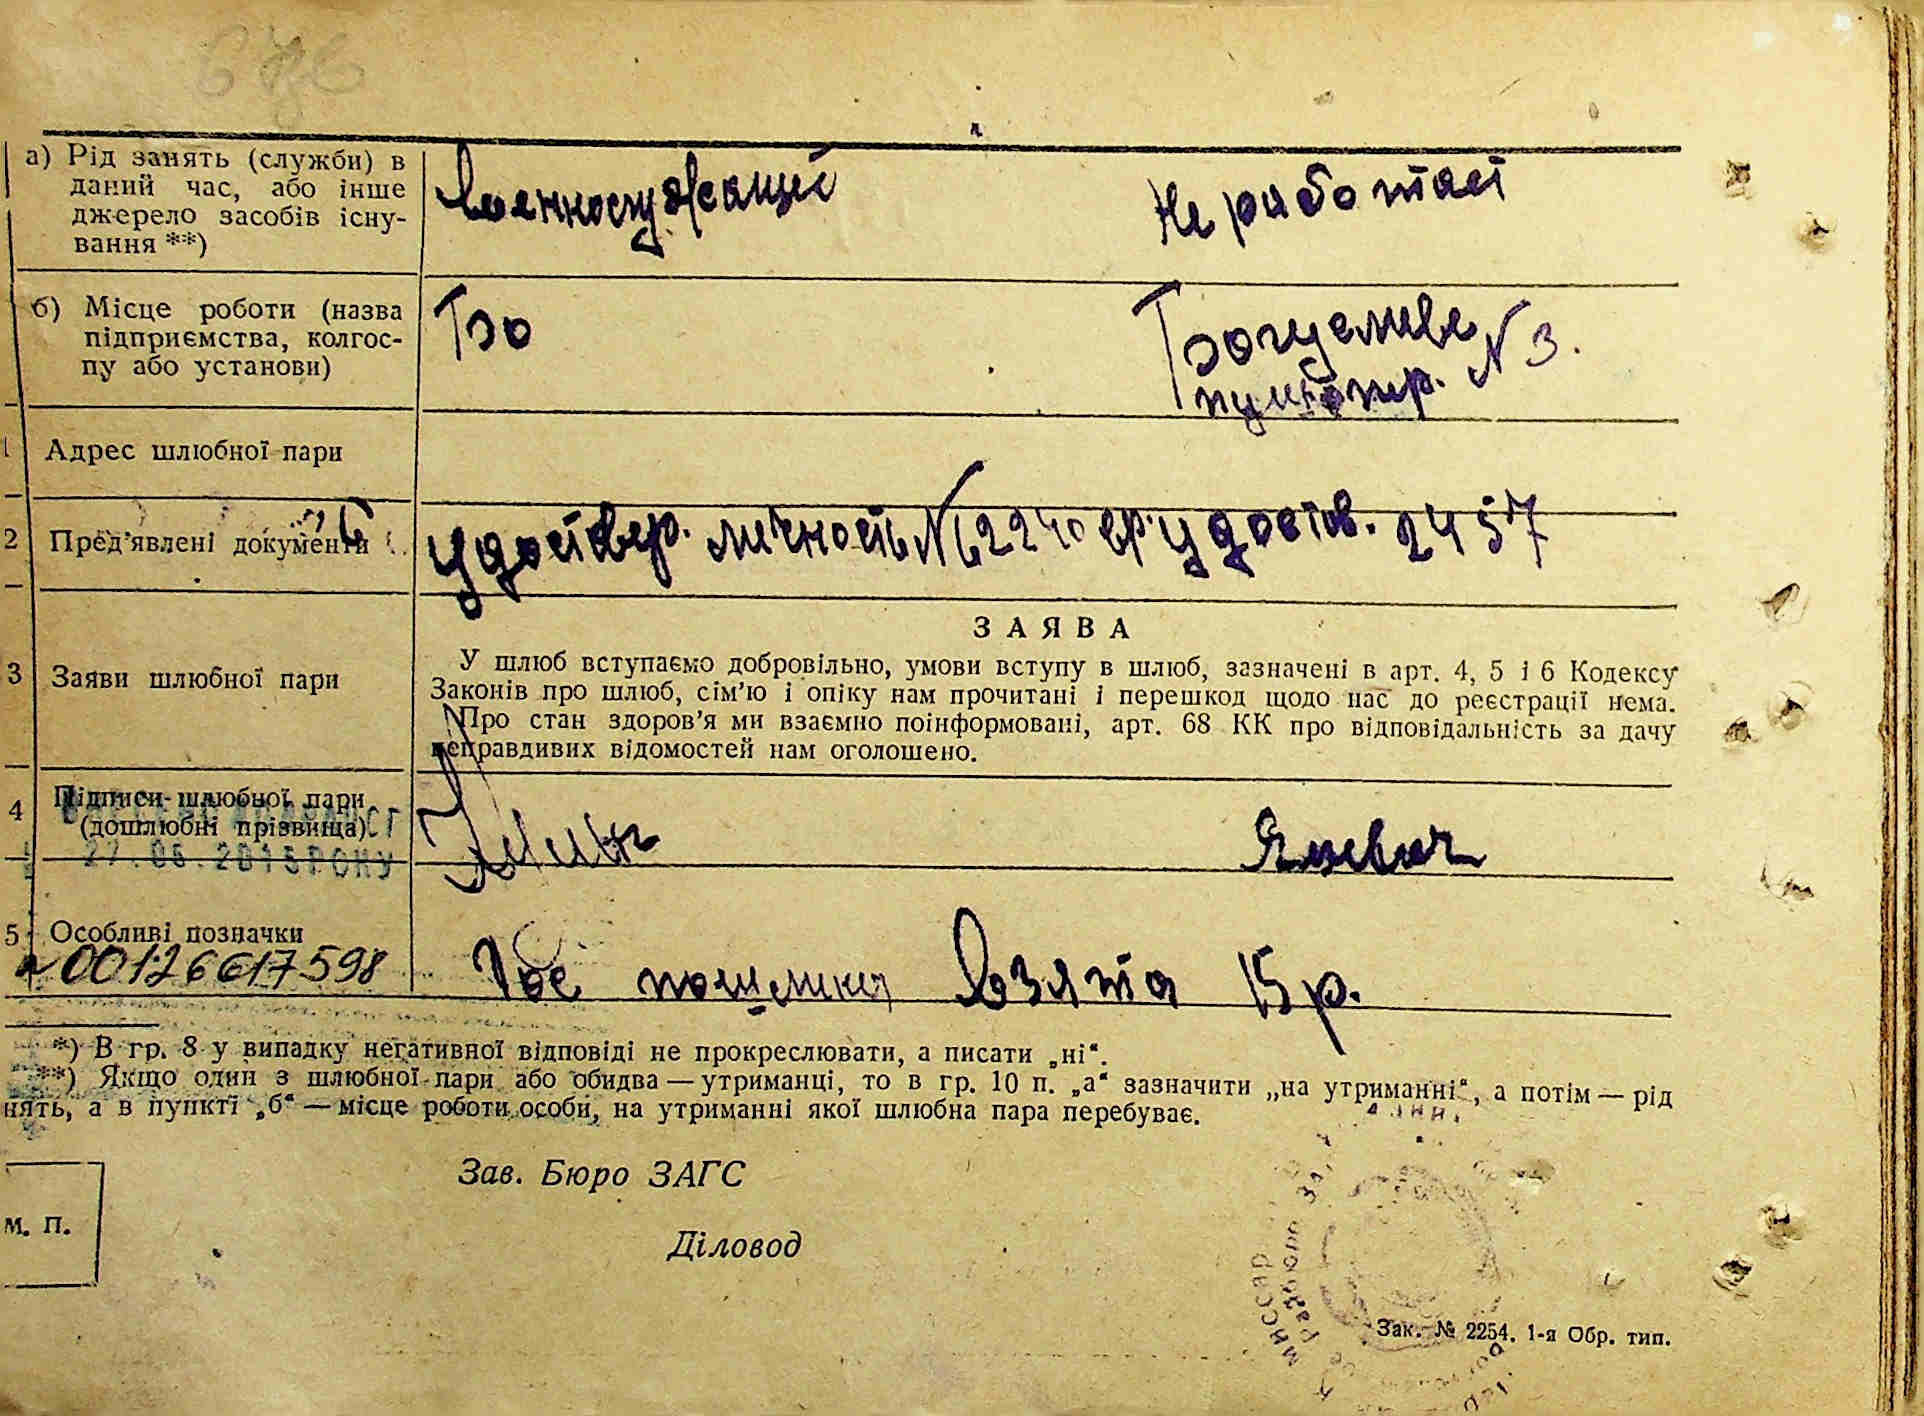 676
а) Рід занять (служби) в
даний час, або інше
джерело засобів існу-
вання **)
Военнослужащий
Не работает
б) Місце роботи (назва
підприємства, колгос-
пу або установи)
№ 3.
1 Адрес шлюбної пари
2 Пред’явлені документи
удоствер. личность № 62240 вр. удостов. 2457
ЗАЯВА
3 Заяви шлюбної пари
У шлюб вступаємо добровільно, умови вступу в шлюб, зазначені в арт. 4, 5 і 6 Кодексу
Законів про шлюб, сім’ю і опіку нам прочитані і перешкод щодо нас до реєстрації нема.
Про стан здоров’я ми взаємно поінформовані, арт. 68 КК про відповідальність за дачу
неправдивих відомостей нам оголошено.
4 Підписи шлюбної пари
(дошлюбні прізвища)
27.06.2015 РОКУ
5 Особливі позначки
00126617598
Гос пошлина взята 15 р.
*) В гр. 8 у випадку негативної відповіді не прокреслювати, а писати „ні“.
**) Якщо один з шлюбної пари або обидва — утриманці, то в гр. 10 п. „а“ зазначити „на утриманні“, а потім — рід
нять, а в пункті „б“ — місце роботи особи, на утриманні якої шлюбна пара перебуває.
Зав. Бюро ЗАГС
М. П.
Діловод
Зак. № 2254. 1-я Обр. тип.